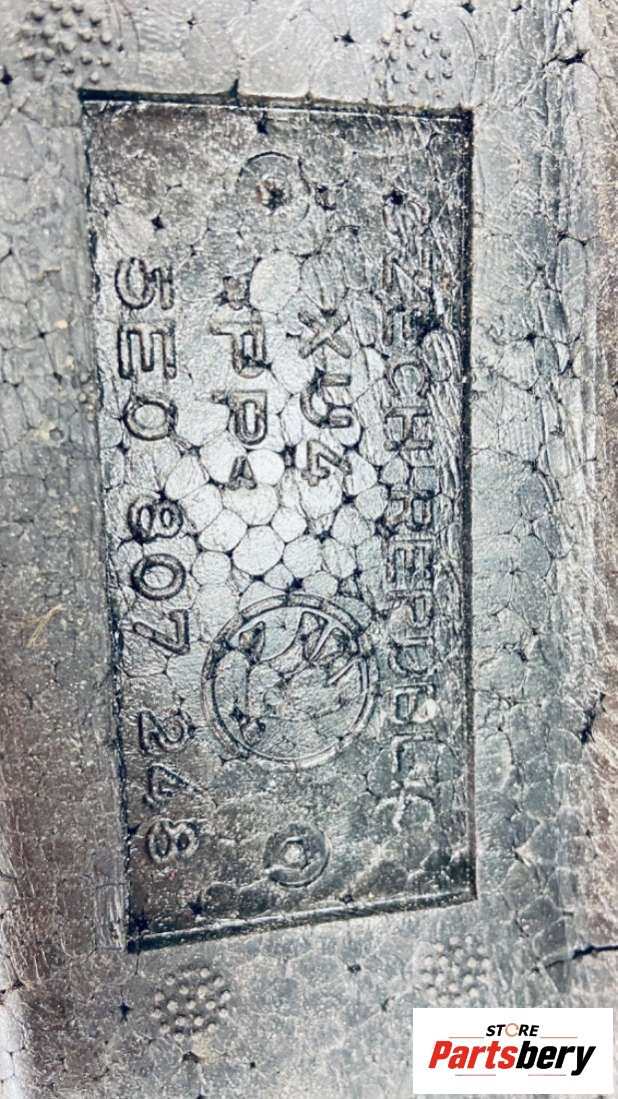 CZECH REPUBLIC
XU4
>PP<
5E0 807 248
STORE
Partsbery